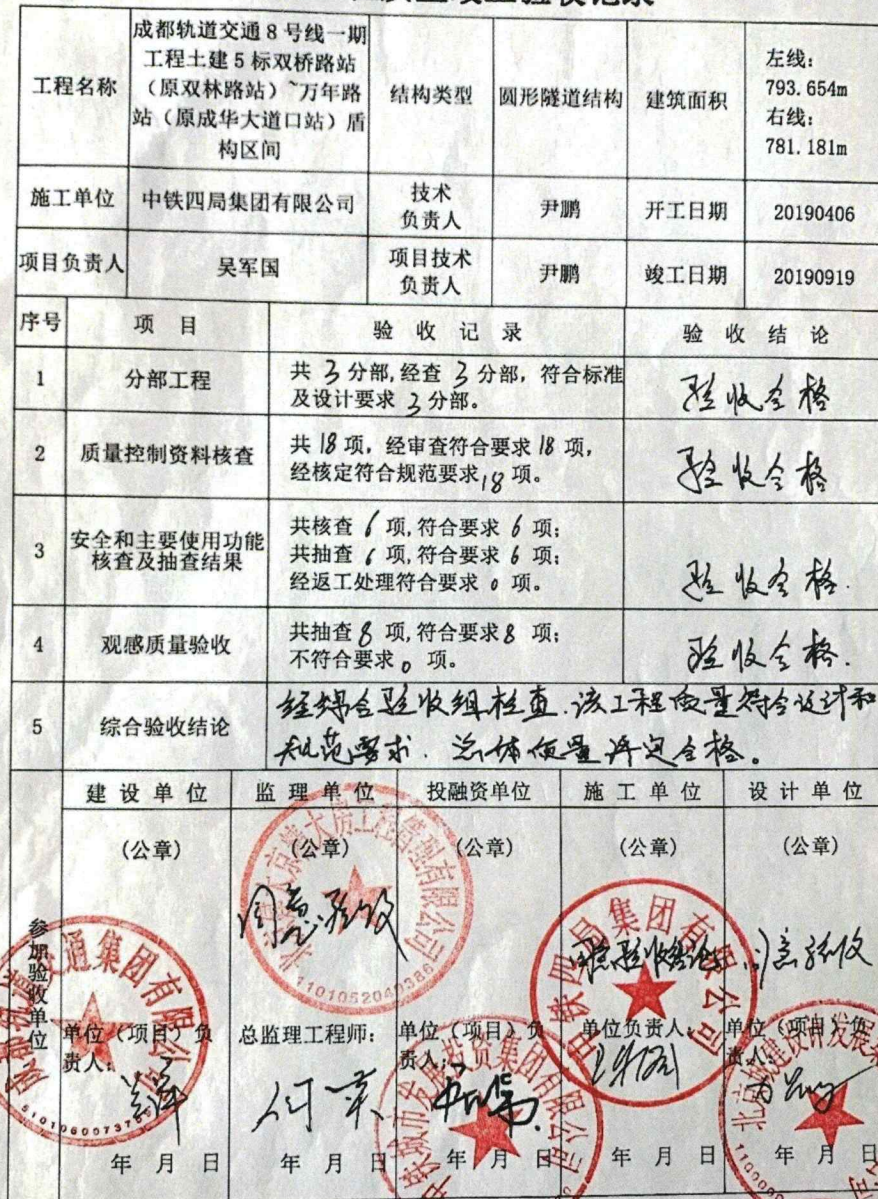 工程名称
成都轨道交通8号线一期
工程土建5标双桥路站
（原双林路站）~万年路
站（原成华大道口站）盾
构区间
结构类型
圆形隧道结构
建筑面积
左线：
793.654m
右线：
781.181m
施工单位
中铁四局集团有限公司
技术
负责人
尹鹏
开工日期
20190406
项目负责人
吴军国
项目技术
负责人
尹鹏
竣工日期
20190919
序号
项 目
验 收 记 录
验 收 结 论
1
分部工程
共 3 分部,经查 3 分部，符合标准
及设计要求 3 分部。
验收合格
2
质量控制资料核查
共 18 项，经审查符合要求 18 项，
经核定符合规范要求 18 项。
验收合格
3
安全和主要使用功能
核查及抽查结果
共核查 6 项,符合要求 6 项；
共抽查 6 项,符合要求 6 项；
经返工处理符合要求 0 项。
验收合格.
4
观感质量验收
共抽查 8 项,符合要求 8 项；
不符合要求 0 项。
验收合格.
5
综合验收结论
经综合验收组检查.该工程质量符合设计和
规范要求.总体质量评定合格。
参加验收单位
建 设 单 位
监 理 单 位
投融资单位
施 工 单 位
设 计 单 位
(公章)
(公章)
(公章)
(公章)
(公章)
同意验收
同意验收
单位（项目）负
责人：
总监理工程师：
单位（项目）负
责人：
单位负责人：
单位（项目）负
责人：
年 月 日
年 月 日
年 月 日
年 月 日
年 月 日
中铁四局集团有限公司
1101052040386